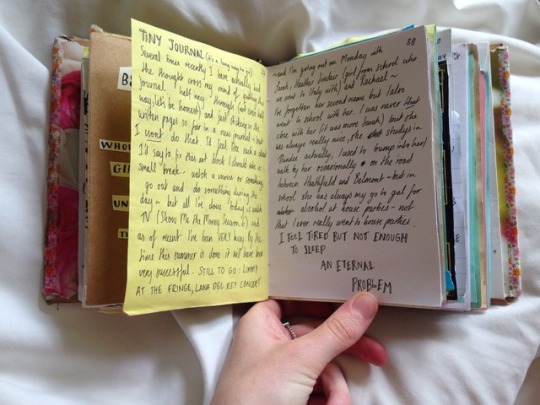 TINY JOURNAL (it's a long way to go)
Several times recently I have actually had
the thought cross my mind of ending this
journal half way through (not even half
way let's be honest) and just sticking to the
written pages so far be a new journal - but
I wont do that. I'd feel like such a cheat
I'd say to fix this art block I should take a
small break - watch a movie or something,
go out and do something during the
day - but all I've done today is watch
TV (Show Me the Money season 6) and
as of recent I've been VERY busy. By the
time this summer is done it will have been
very successful. STILL TO GO: LIMMY
AT THE FRINGE, LANA DEL REY CONCERT
58
~ and I'm going out on Monday with
Sarah, Heather (girl from school who
we went to Italy with) and Rachael ~
I've forgotten her second name but I also
went to school with her. I was never that
close with her (it was more Sarah) but she
was always really nice, she studys in
Dundee actually, I used to bump into her/
walk by her occasionally on the road
between Heathfield and Belmont ~ but in
school she was always my go to gal for
alcohol at house parties - not
that I ever really went to house parties.
I FEEL TIRED BUT NOT ENOUGH
TO SLEEP
AN ETERNAL
PROBLEM
WHO
GI
UN